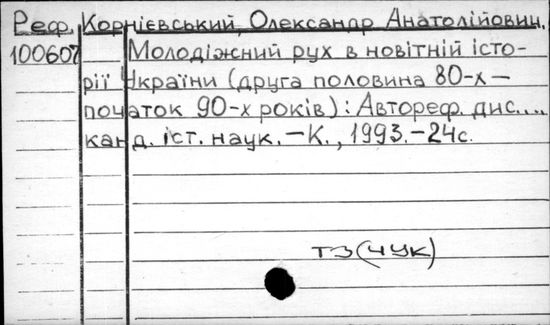 Реф. Корнієвський, Олександр Анатолійович.
100607 Молодіжний рух в новітній істо-
рії України (друга половина 80-х —
початок 90-х років): Автореф. дис....
канд. іст. наук. — К., 1993. — 24с.
ТЗ(4УК)